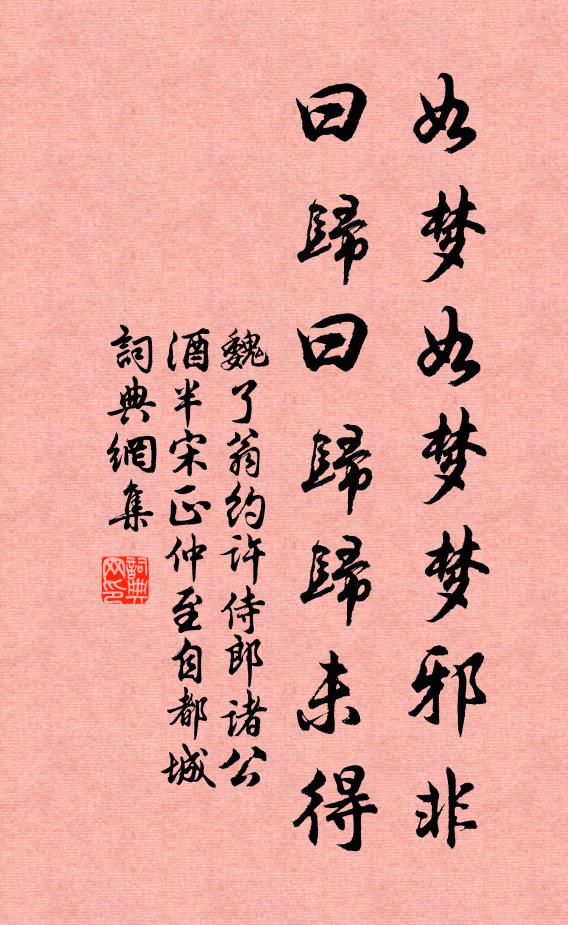 如梦如梦梦邪非
曰歸曰歸歸未得
魏了翁约许侍郎诸公
酒半宋正仲至自都城
詞典網集
詞典网印